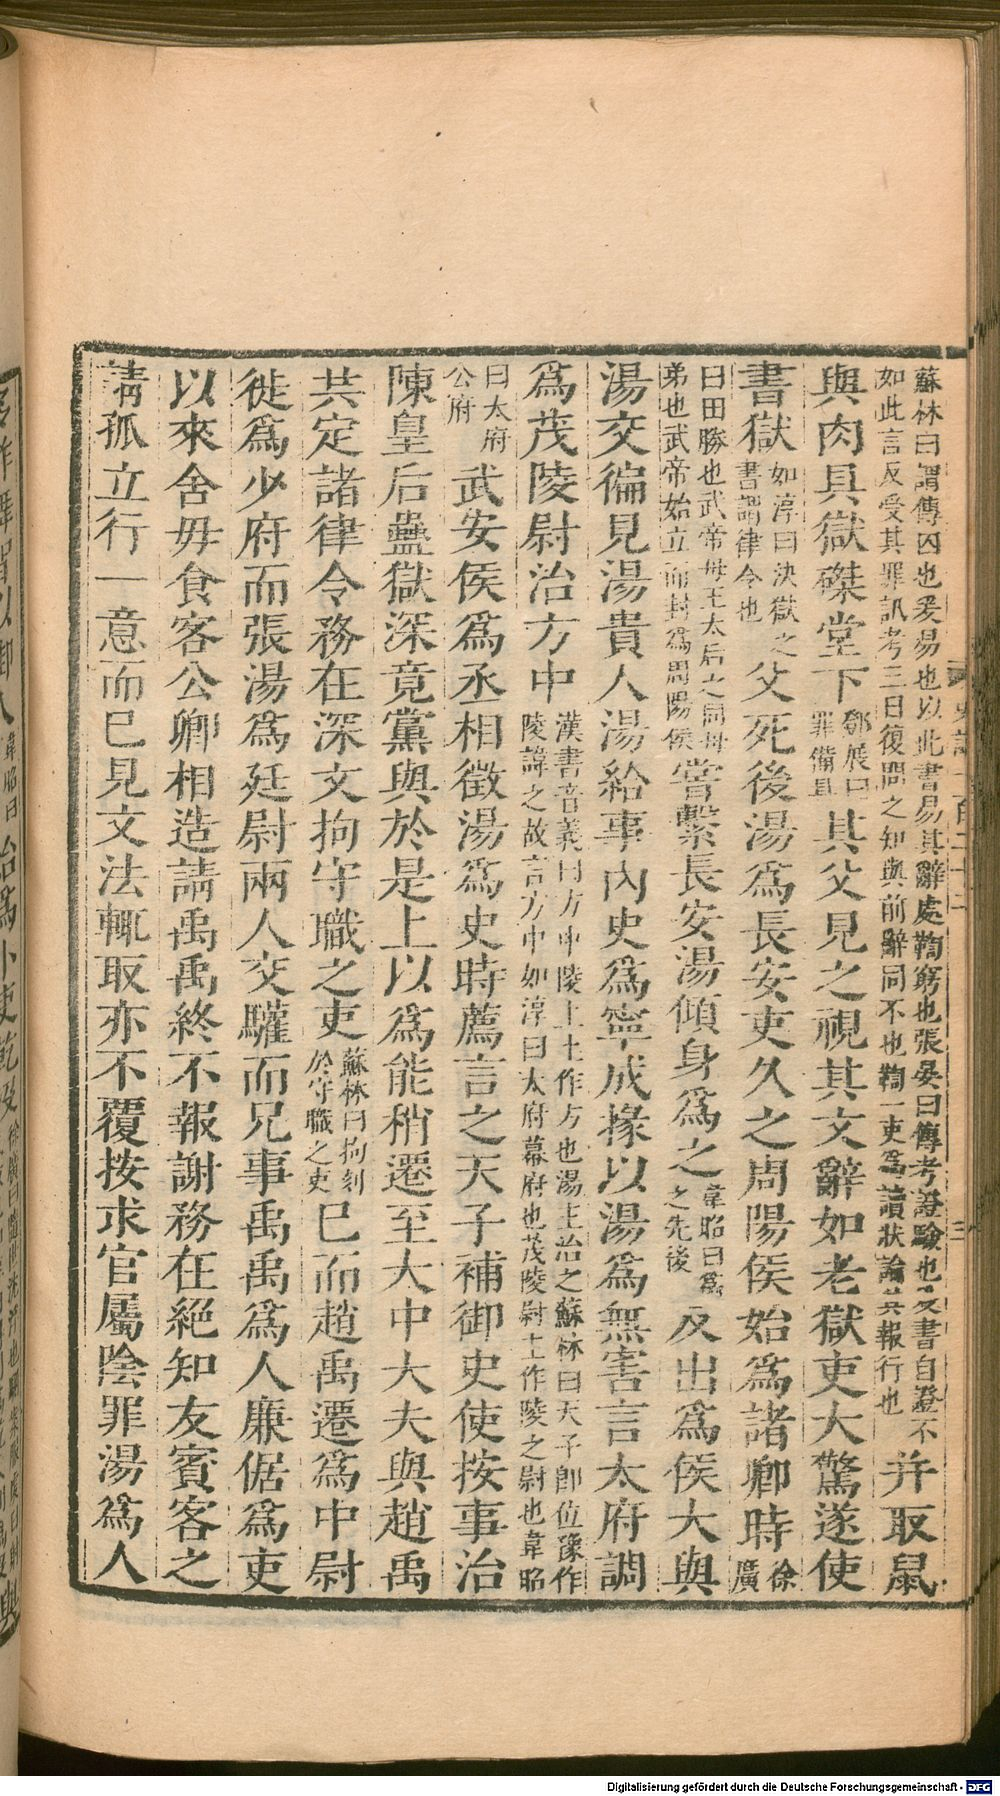 蘇林曰謂傳囚也爰易也以此書易其辭處鞫窮也張晏曰傳考證驗也爰書自證不
如此言反受其罪訊考三日復問之知與前辭同不也鞫一吏爲讀狀論其報行也
并取鼠
與肉具獄磔堂下
鄧展曰
罪備具
其父見之視其文辭如老獄吏大驚遂使
書獄
如淳曰決獄之
書謂律令也
父死後湯爲長安吏久之周陽侯始爲諸卿時
徐
廣
曰田勝也武帝母王太后之同母
弟也武帝始立而封爲周陽侯
嘗繫長安湯傾身爲之
韋昭曰爲
之先後
及出爲侯大與
湯交徧見湯貴人湯給事內史爲寧成掾以湯爲無害言太府調
爲茂陵尉治方中
漢書音義曰方中陵上土作方也湯主治之蘇林曰天子卽位豫作
陵諱之故言方中如淳曰太府幕府也茂陵尉主作陵之尉也韋昭
曰太府
公府
武安侯爲丞相徵湯爲史時薦言之天子補御史使按事治
陳皇后蠱獄深竟黨與於是上以爲能稍遷至大中大夫與趙禹
共定諸律令務在深文拘守職之吏
蘇林曰拘刻
於守職之吏
已而趙禹遷爲中尉
徙爲少府而張湯爲廷尉兩人交驩而兄事禹禹爲人廉倨爲吏
以來舍毋食客公卿相造請禹禹終不報謝務在絕知友賓客之
請孤立行一意而已見文法輒取亦不覆按求官屬陰罪湯爲人
Digitalisierung gefördert durch die Deutsche Forschungsgemeinschaft - DFG